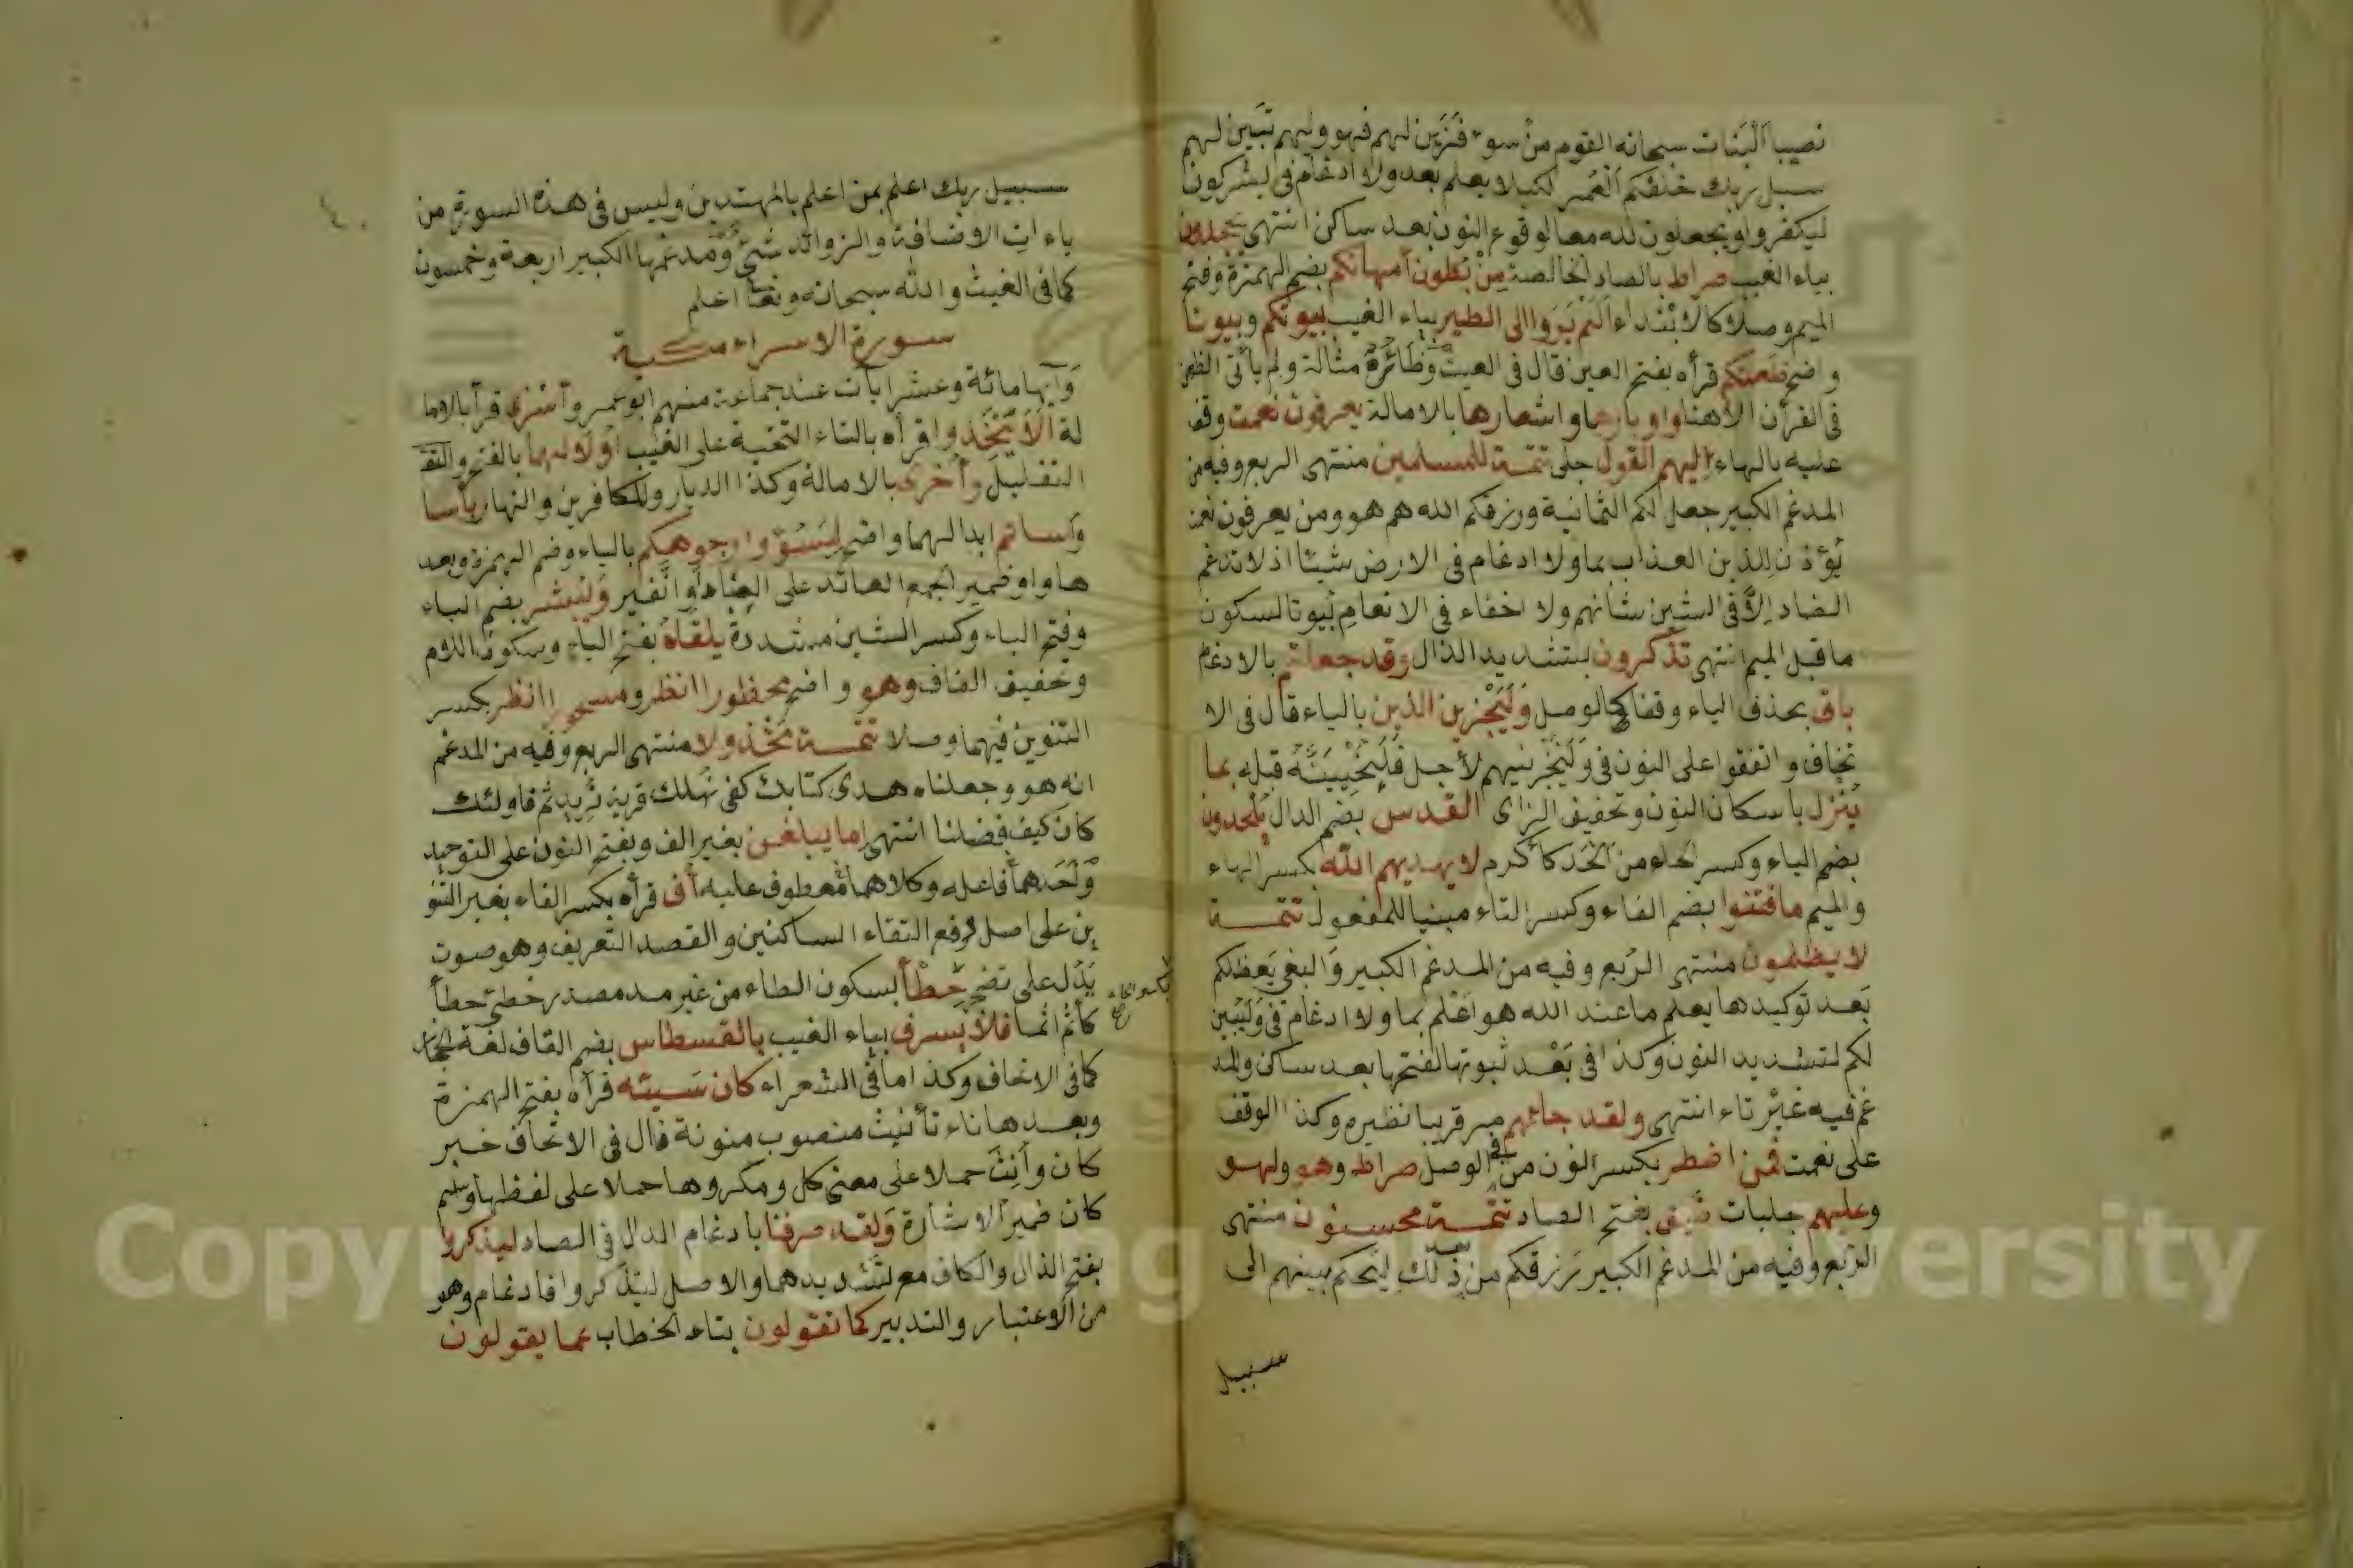 نصيبا البنات سبحانه القوم من سوء فزين لهم فهو وليهم تبين لهم
سبل ربك خلقكم العمر لكيلا يعلم بعد ولا ادغام في يشركون
ليكفروا ويجعلون لله معا لوقوع النون بعد ساكن انتهى يجحدون
بياء الغيب صراط بالصاد الخالصة من بطون امهاتكم بضم الهمزة وفتح
الميم وصلا كالابتداء الم يروا الى الطير بياء الغيب بيوتكم وبيوتا
واضح ظعنكم قرأه بفتح العين قال في الغيث وظائره مثالة ولم يأتى الظعن
في القرآن الا هنا واوبارها واشعارها بالامالة يعرفون نعمت وقف
عليه بالهاء اليهم القول جلى تتمة للمسلمين منتهى الربع وفيه من
المدغم الكبير جعل لكم الثمانية ورزقكم الله هم هو ومن يعرفون نعمت
يؤذن للذين العذاب بما ولا ادغام في الارض شيئا اذ لا تدغم
الضاد الا في الشين شانهم ولا اخفاء في الانعام بيوتا لسكون
ما قبل الميم انتهى تذكرون بتشديد الذال وقد جعلتم بالادغام
باق بحذف الياء وقفا كالوصل وليجزين الذين بالياء قال في الا
تحاف واتفقوا على النون في ولنجزينهم لأجل فلنحيينه قبله بما
ينزل باسكان النون وتخفيف الزاى القدس بضم الدال يلحدون
بضم الياء وكسر الحاء من الحد كأكرم لا يهديهم الله بكسر الهاء
والميم ما فتنوا بضم الفاء وكسر التاء مبنيا للمفعول تتمة
لا يظلمون منتهى الربع وفيه من المدغم الكبير والبغي يعظكم
بعد توكيدها يعلم ما عند الله هو اعلم بما ولا ادغام في وليبين
لكم لتشديد النون وكذا في بعد ثبوتها لفتحها بعد ساكن والمد
غم فيه غير تاء انتهى ولقد جاءهم مر قريبا نظيره وكذا الوقف
على نعمت فمن اضطر بكسر النون من في الوصل صراط وهو ولهو
وعليهم جليات ضيق بفتح الضاد تتمة محسنون منتهى
الربع وفيه من المدغم الكبير رزقكم من بعد ذلك ليحكم بينهم الى
سبيل
سبيل ربك اعلم بمن اعلم بالمهتدين وليس في هذه السورة من
ياءات الاضافة والزوائد شئ ومدغمها الكبير اربعة وخمسون
كما في الغيث والله سبحانه وتعالى اعلم
سورة الاسراء مكية
وآيها مائة وعشر ايات عند جماعة منهم ابو عمرو وأسرى قرأ بالاما
لة الا يتخذوا قرأه بالتاء التحتية على الغيب اولاهما بالفتح والتق
التقليل وأخرى بالامالة وكذا الديار وللكافرين والنهار بأسا
وأساتم ابدالهما واضح ليسؤوا وجوهكم بالياء وضم الهمزة وبعد
ها واو ضمير الجمع العائد على العباد او النفير ويبشر بضم الياء
وفتح الباء وكسر الشين مشددة يلقاه بفتح الياء وسكون اللام
وتخفيف القاف وهو واضح محظورا انظر ومسحورا انظر بكسر
التنوين فيهما وصلا تتمة مخذولا منتهى الربع وفيه من المدغم
انه هو وجعلناه هدى كتابك كفى نهلك قرية نريد ثم فاولئك
كان كيف فضلنا انتهى اما يبلغن بغير الف وبفتح النون على التوحيد
واحدهما فاعله وكلاهما معطوف عليه أف قرأه بكسر الفاء بغير التنو
ين على اصل لرفع التقاء الساكنين والقصد التعريف وهو صوت
يدل على تضجر خطأ بسكون الطاء من غير مد مصدر خطئ خطأ
بكسر الخاء صح
كأثم اثما فلا يسرف بياء الغيب بالقسطاس بضم القاف لغة الحجاز
كما في الاتحاف وكذا ما في الشعراء كان سيئه قرأه بفتح الهمزة
وبعدها تاء تأنيث منصوب منونة قال في الاتحاف خبر
كان وأنث حملا على معنى كل ومكروها حملا على لفظها واسم
كان ضمير الاشارة ولقد صرفنا بادغام الدال في الصاد ليذكروا
بفتح الذال والكاف مع لتشديدهما والاصل ليتذكروا فادغام وهو
من الاعتبار والتدبير كما تقولون بتاء الخطاب عما يقولون